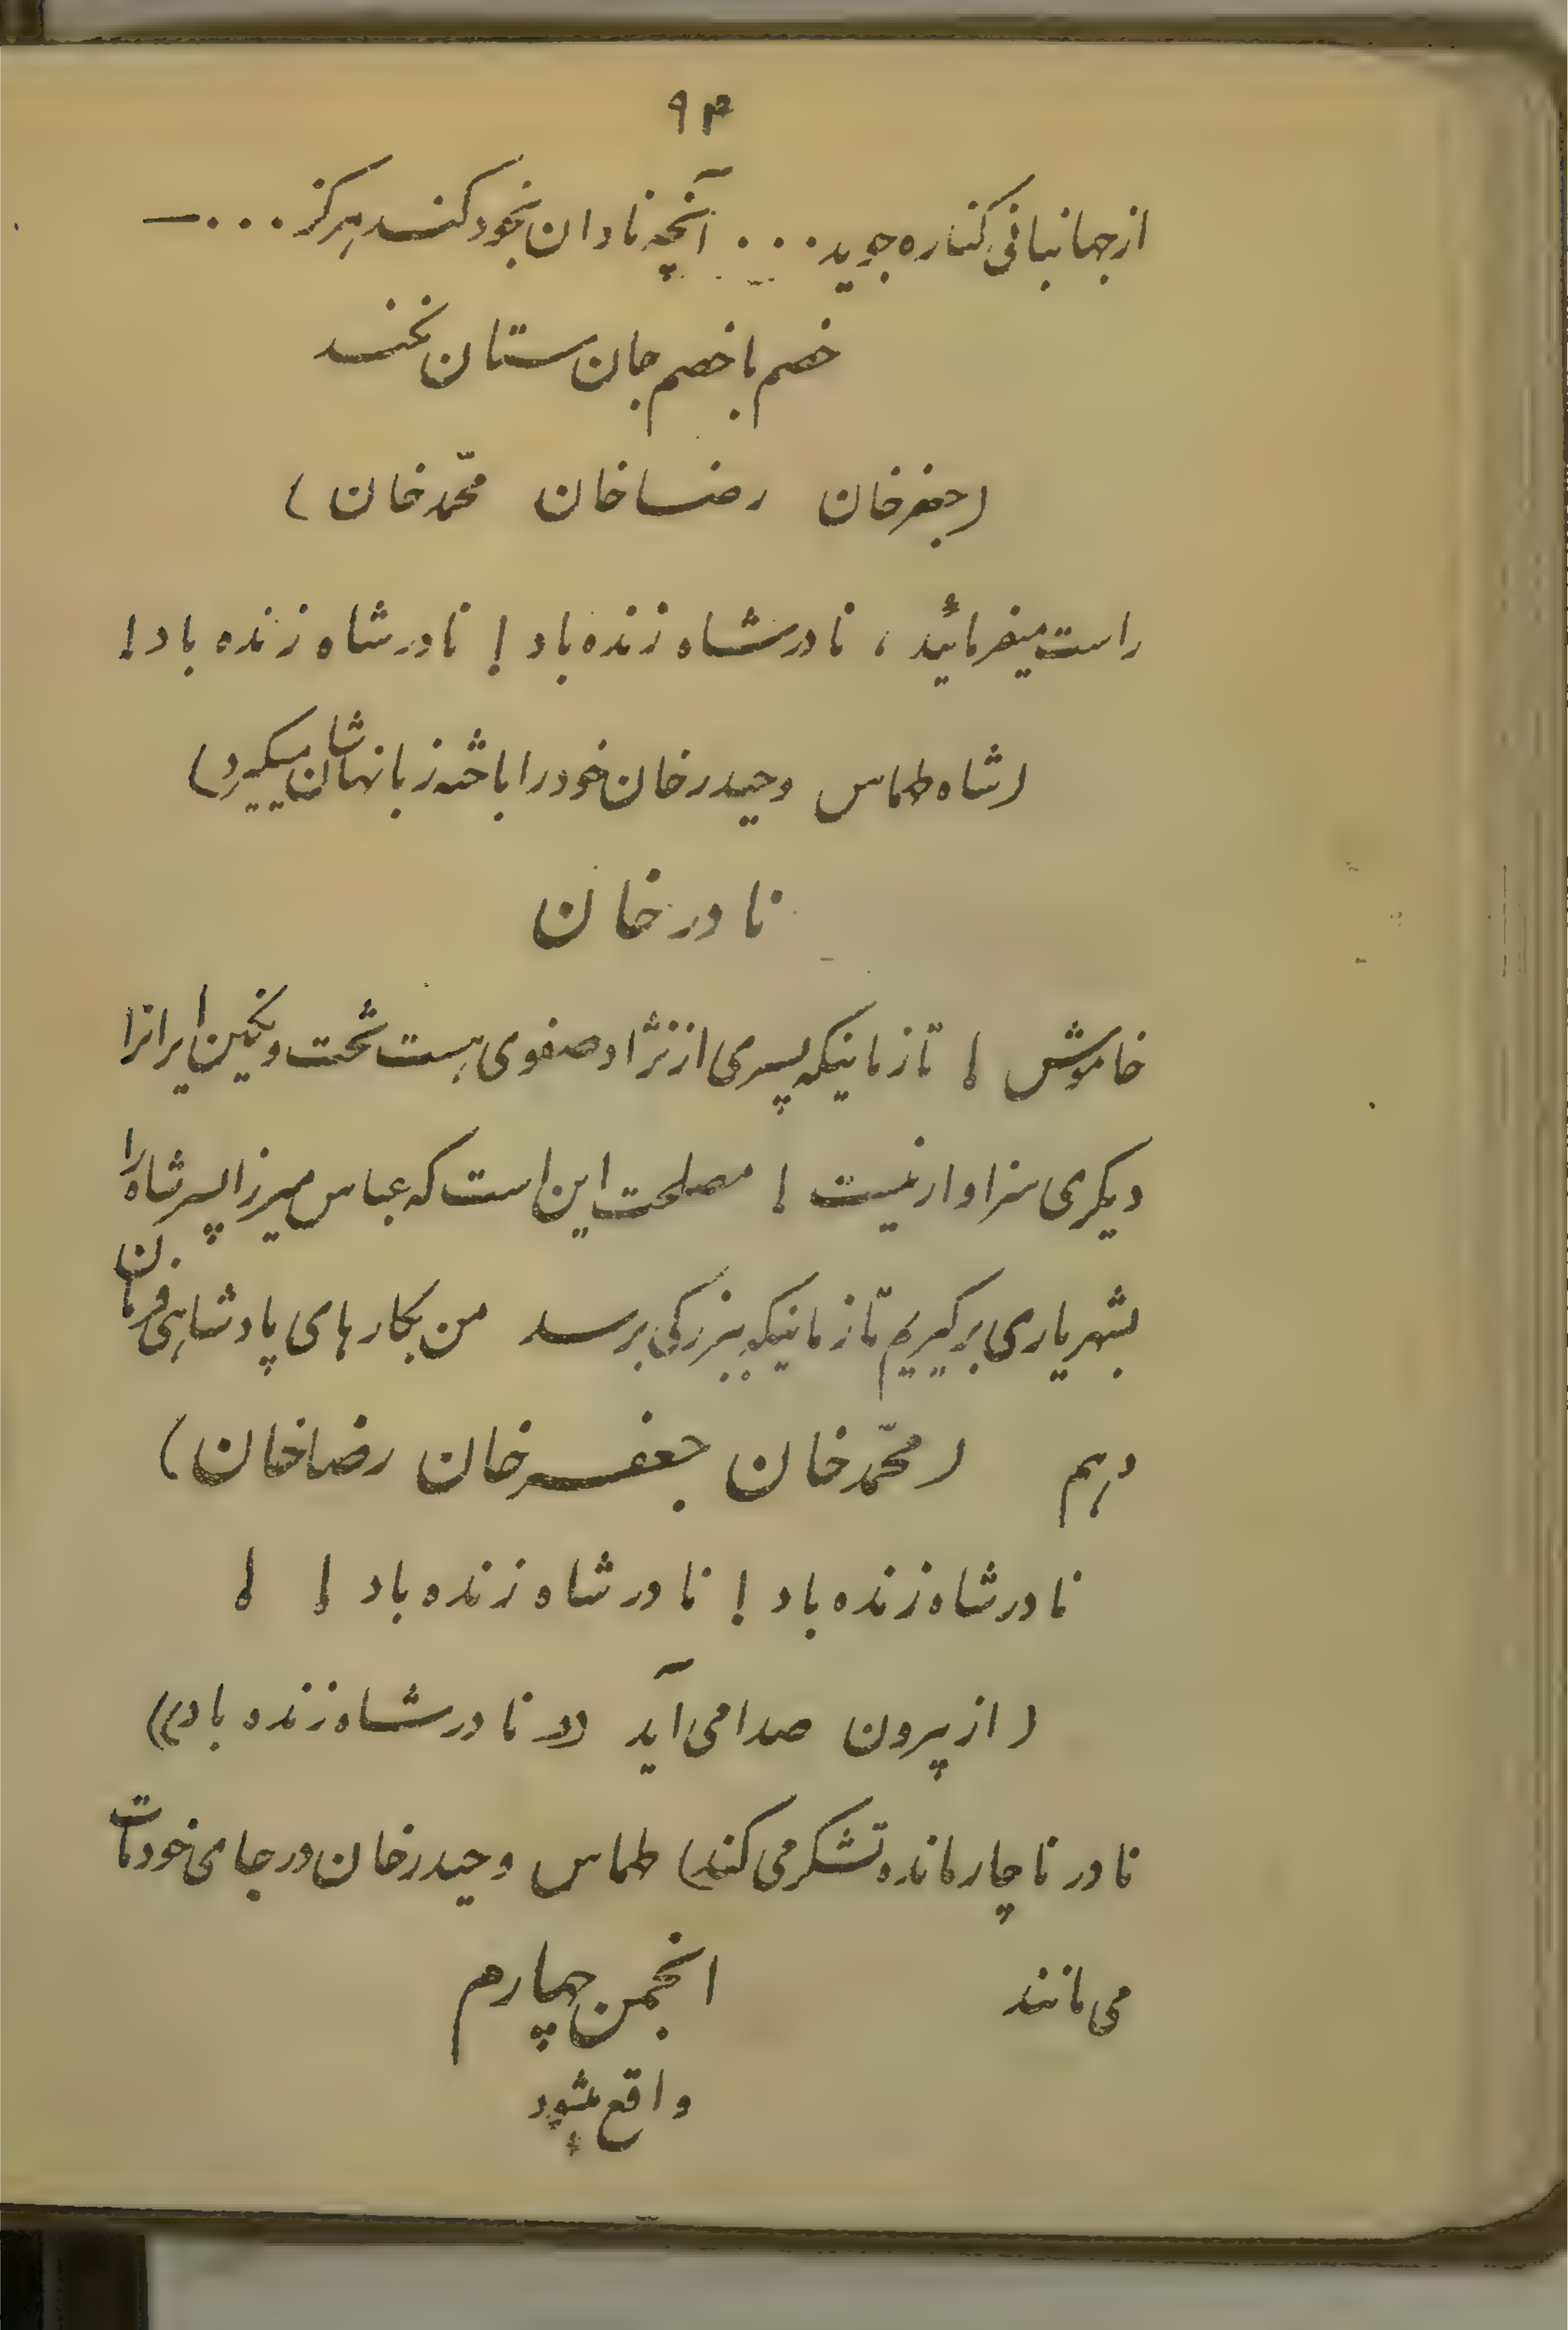 ۹۴
از جهانبانی کناره جوید ۰۰۰ آنچه نادان بخود کند هرگز ۰۰۰ —
خصم با خصم جان ستان نکند
(جعفرخان رضاخان محمّدخان)
راست میفرمائید ، نادرشاه زنده باد ! نادرشاه زنده باد !
(شاه طماس و حیدرخان خود را باخته زبانهاشان میگیرد)
نادرخان
خاموش ! تا زمانیکه پسری از نژاد صفوی هست تخت و نگین ایرانرا
دیگری سزاوار نیست ! مصلحت این است که عباس میرزا پسر شاه را
بشهریاری برگیریم تا زمانیکه ببزرگی برسد من بکارهای پادشاهی فرمان
دهم (محمّدخان جعفرخان رضاخان)
نادرشاه زنده باد ! نادرشاه زنده باد ! !
(از پیرون صدا می آید «نادرشاه زنده باد»)
نادر ناچار مانده تشکر می کند) طماس و حیدرخان در جای خود مات
می مانند انجمن چهارم
واقع میشود